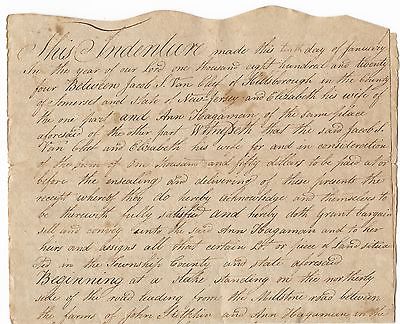 This Indenture made this tenth day of January
In the year of our Lord one thousand eight hundred and twenty
four Between Jacob J. Van Clief of Hillsborough in the County
of Somerset and State of New Jersey and Elizabeth his wife of
the one part and Ann Hagaman of the same place
aforesaid of the other part Witnesseth that the said Jacob J.
Van Clief and Elizabeth his wife for and in consideration
of the sum of One thousand and fifty dollars to be paid at or
before the ensealing and delivering of these presents the
receipt whereof they do hereby acknowledge and themselves to
be therewith fully satisfied and hereby doth Grant bargain
sell and convey unto the said Ann Hagaman and to her
heirs and assigns all that certain Lot or piece of Land situa
ted in the Township County and State aforesaid
Beginning at a stake standing on the northerly
side of the road leading from the Millstone road between
the farms of John and Ann Hagaman in the